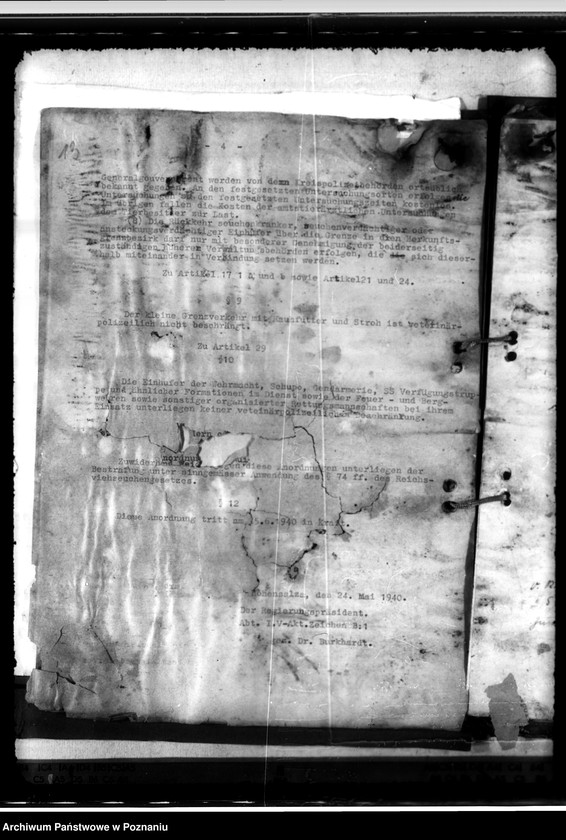 13
Generalgouvernement werden von den Kreispolizeibehörden
bekannt gegeben. An den festgesetzten Untersuchungsorten
Untersuchungen zu den festgesetzten Untersuchungszeiten
fallen die Kosten der amtstierärztlichen Untersuchung
zur Last.
Die Rückkehr seuchenkranker, seuchenverdächtiger oder
ansteckungsverdächtiger Einhufer über die Grenze in den Herkunfts-
Grenzbezirk darf nur mit besonderer Genehmigung der beiderseitig
zuständigen höheren Verwaltungsbehörden erfolgen, die sich dieser-
halb miteinander in Verbindung setzen werden.
Zu Artikel 17 1 a und b sowie Artikel 21 und 24.
§ 9
Der kleine Grenzverkehr mit Rauhfutter und Stroh ist veterinär-
polizeilich nicht beschränkt.
Zu Artikel 29
§10
Die Einhufer der Wehrmacht, Schupo, Gendarmerie, SS Verfügungstrup-
pe und ähnlicher Formationen im Dienst sowie der Feuer - und Berg-
wehren sowie sonstiger organisierter Rettungsmannschaften bei ihrem
Einsatz unterliegen keiner veterinärpolizeilichen Beschränkung.
Zuwiderhandlungen gegen diese Anordnungen unterliegen der
Bestrafung unter sinngemässer Anwendung des § 74 ff. des Reichs-
viehseuchengesetzes.
§ 12
Diese Anordnung tritt am 15.6.1940 in Kraft.
Hohensalza, den 24. Mai 1940.
Der Regierungspräsident.
Abt. I.V-Akt.Zeichen B:1
gez. Dr. Burkhardt.
Archiwum Państwowe w Poznaniu